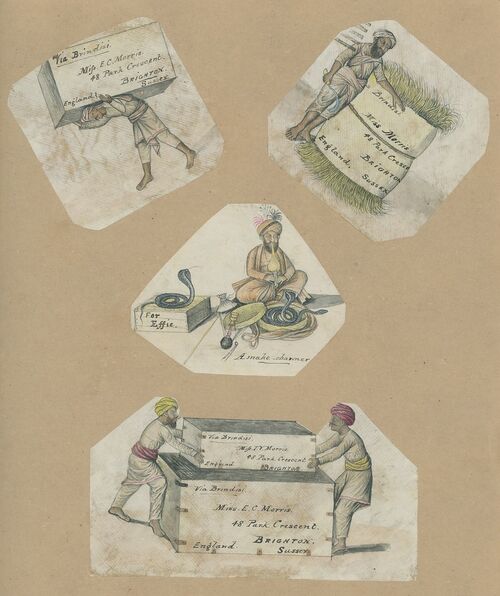 Via Brindisi.
Miss. E. C. Morris.
48 Park Crescent.
BRIGHTON.
Sussex
England.
Brindisi.
Miss Morris
48 Park Crescent
BRIGHTON
England.
Sussex.
For
Effie.
A snake-charmer
Via Brindisi
Morris
48 Park Crescent.
England
BRIGHTON
Via Brindisi.
Miss. E. C. Morris.
48 Park Crescent.
England.
BRIGHTON.
Sussex.